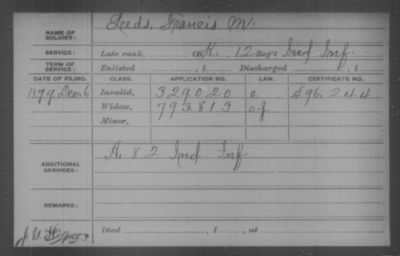 NAME OF SOLDIER: Leeds, Francis M.
SERVICE: Late rank, Co K, 12 Reg't Ind Inf.
TERM OF SERVICE: Enlisted , 1 Discharged , 1
DATE OF FILING. CLASS. APPLICATION NO. LAW. CERTIFICATE NO.
1879 Dec 6 Invalid, 329020 496.244
Widow, 793813
Minor,
ADDITIONAL SERVICES: A. 82 Ind Inf
REMARKS:
Died , 1 , at